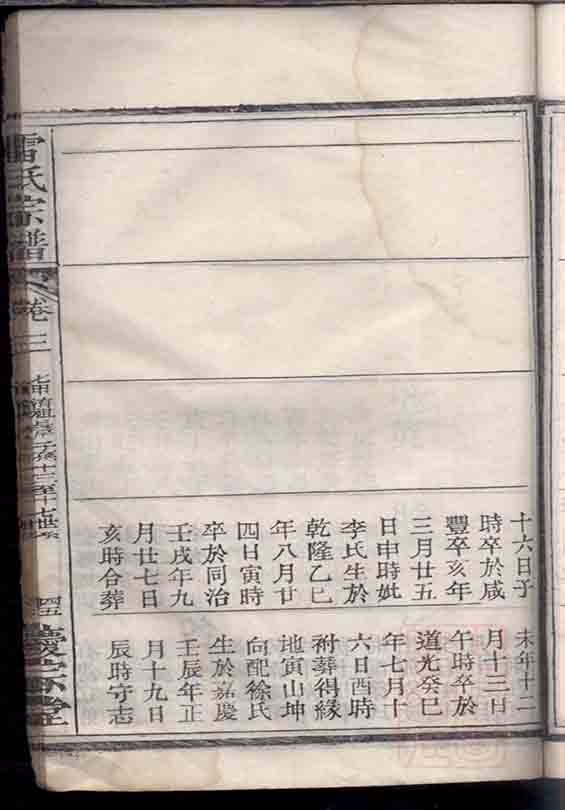 十六日子
時卒於咸
豐辛亥年
三月廿五
日申時妣
李氏生於
乾隆乙巳
年八月廿
四日寅時
卒於同治
壬戌年九
月廿七日
亥時合葬
未年十二
月十三日
午時卒於
道光癸巳
年七月十
六日酉時
祔葬得緣
地寅山坤
向配徐氏
生於嘉慶
壬辰年正
月十九日
辰時守志
雷氏宗譜
卷三